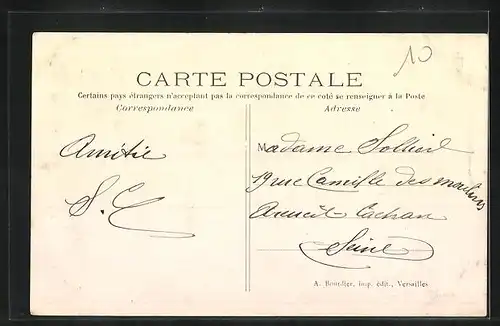 10
CARTE POSTALE
Certains pays étrangers n'acceptant pas la correspondance de ce coté se renseigner à la Poste
Correspondance
Adresse
Amitié
S. C
Madame
19 rue Camille des moulins
Arcueil Cachan
Seine
A. Bourdier, imp. édit., Versailles